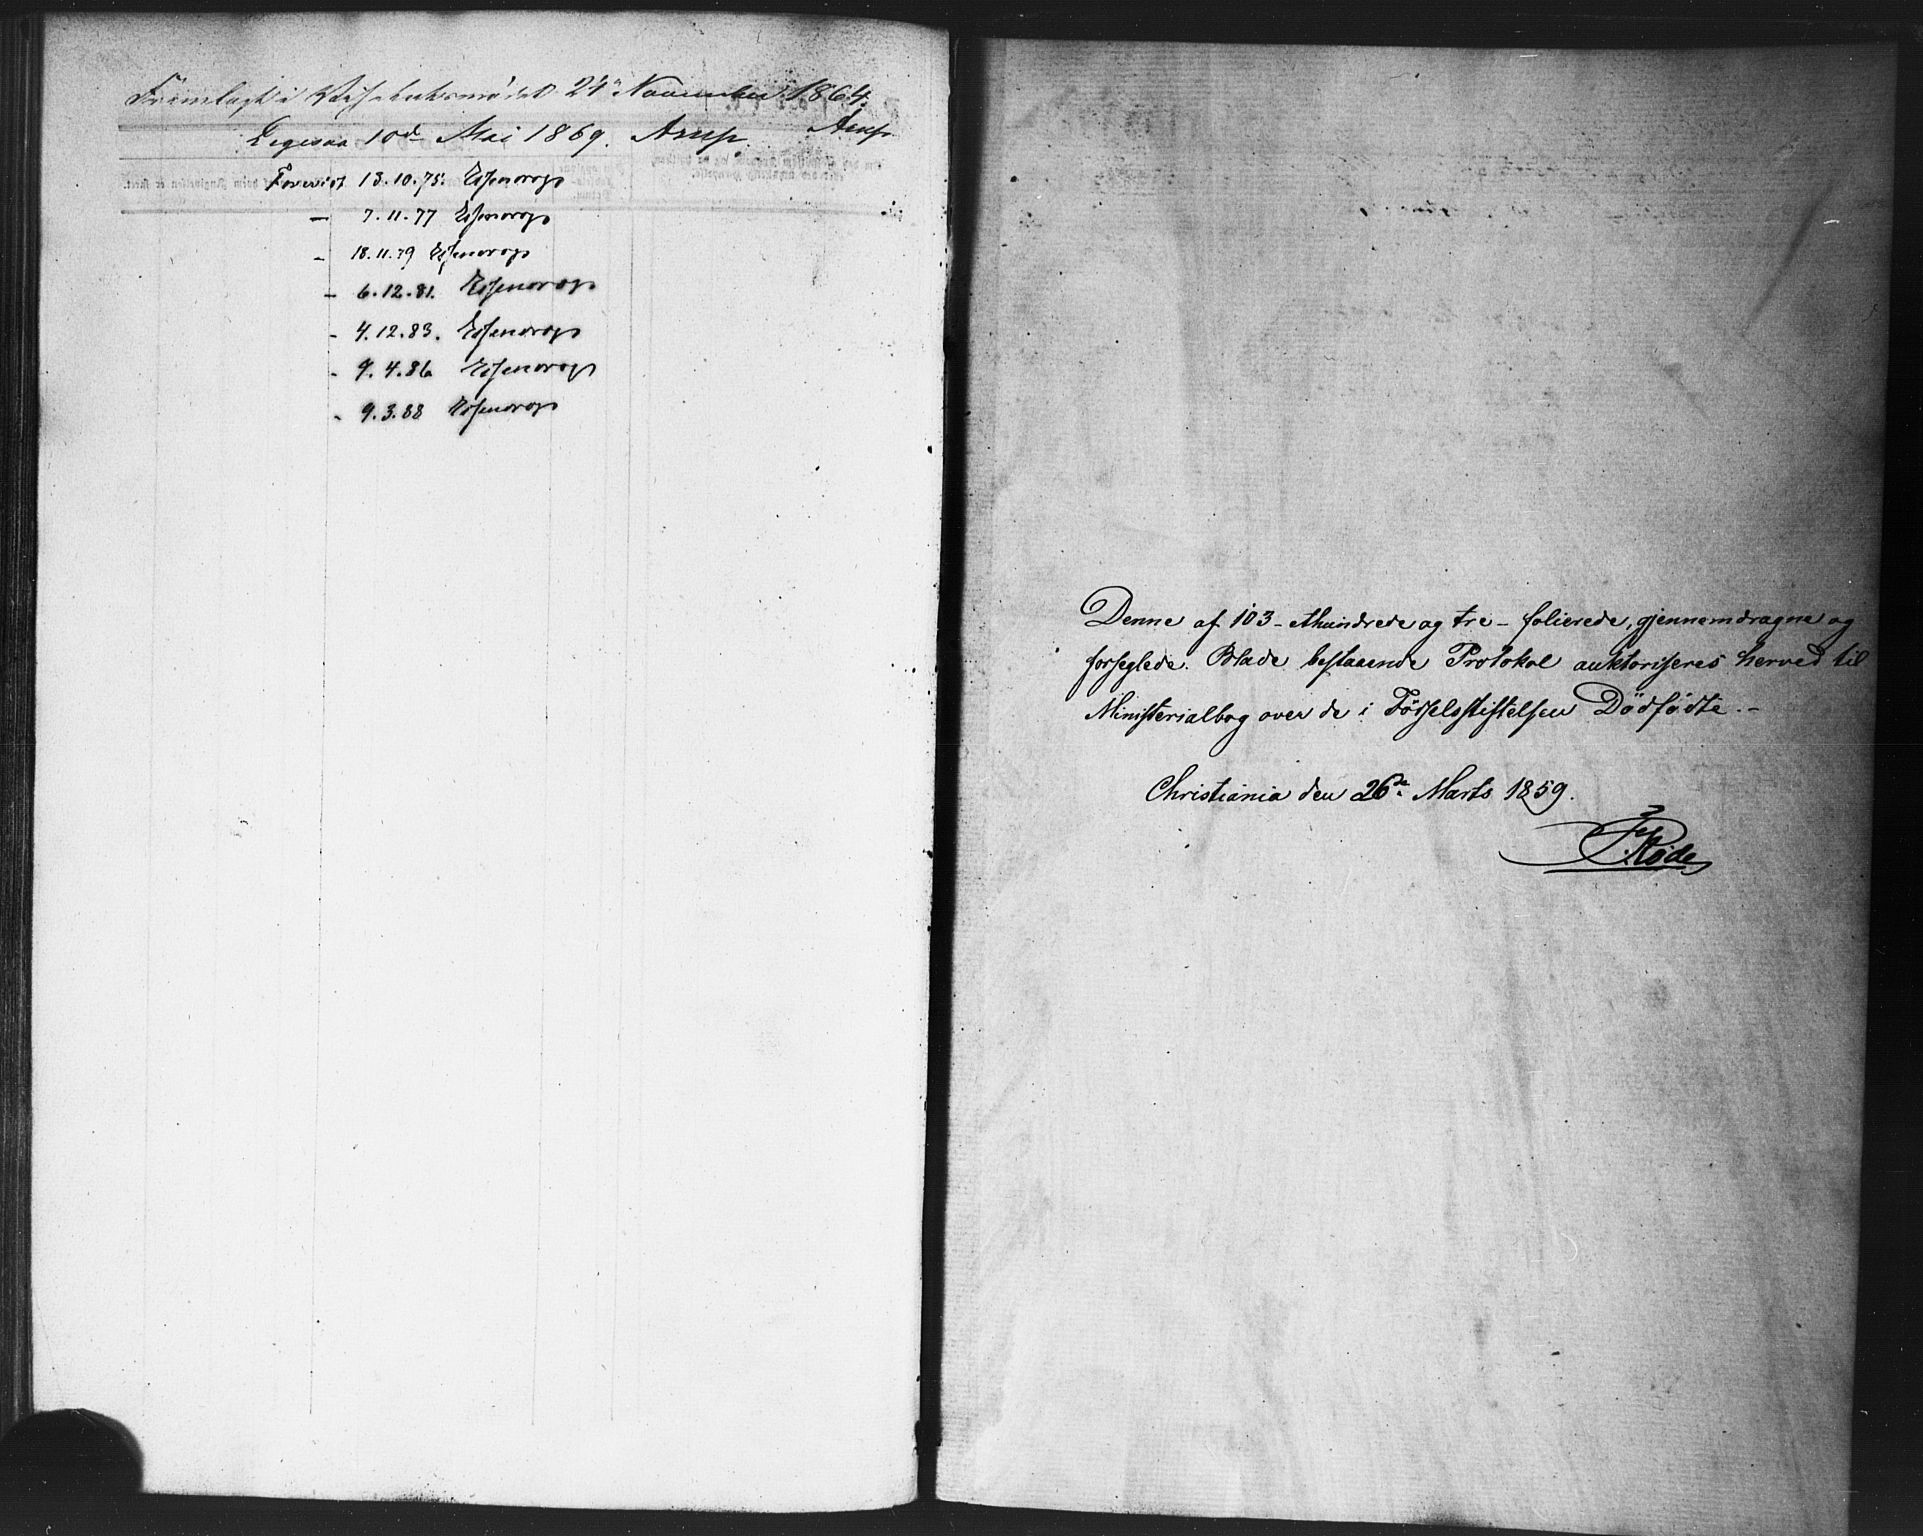 Fremlagt i Visitatsmødet 24de November 1864.
Arup
Ligesaa 10de Mai 1869. Arup.
Forevist 13.10.75. Essendrop
— 7.11.77 Essendrop
- 18.11.79 Essendrop
- 6.12.81. Essendrop
- 4.12.83. Essendrop
- 9.4.86 Essendrop
- 9.3.88 Essendrop
Denne af 103 - Ethundrede og tre - folierede, gjennemdragne og
forseglede Blade bestaaende Protokol auktoriseres herved til
Ministerialbog over de i Fødselsstiftelsen Dødfødte. -
Christiania den 26de Marts 1859.
F. Rode